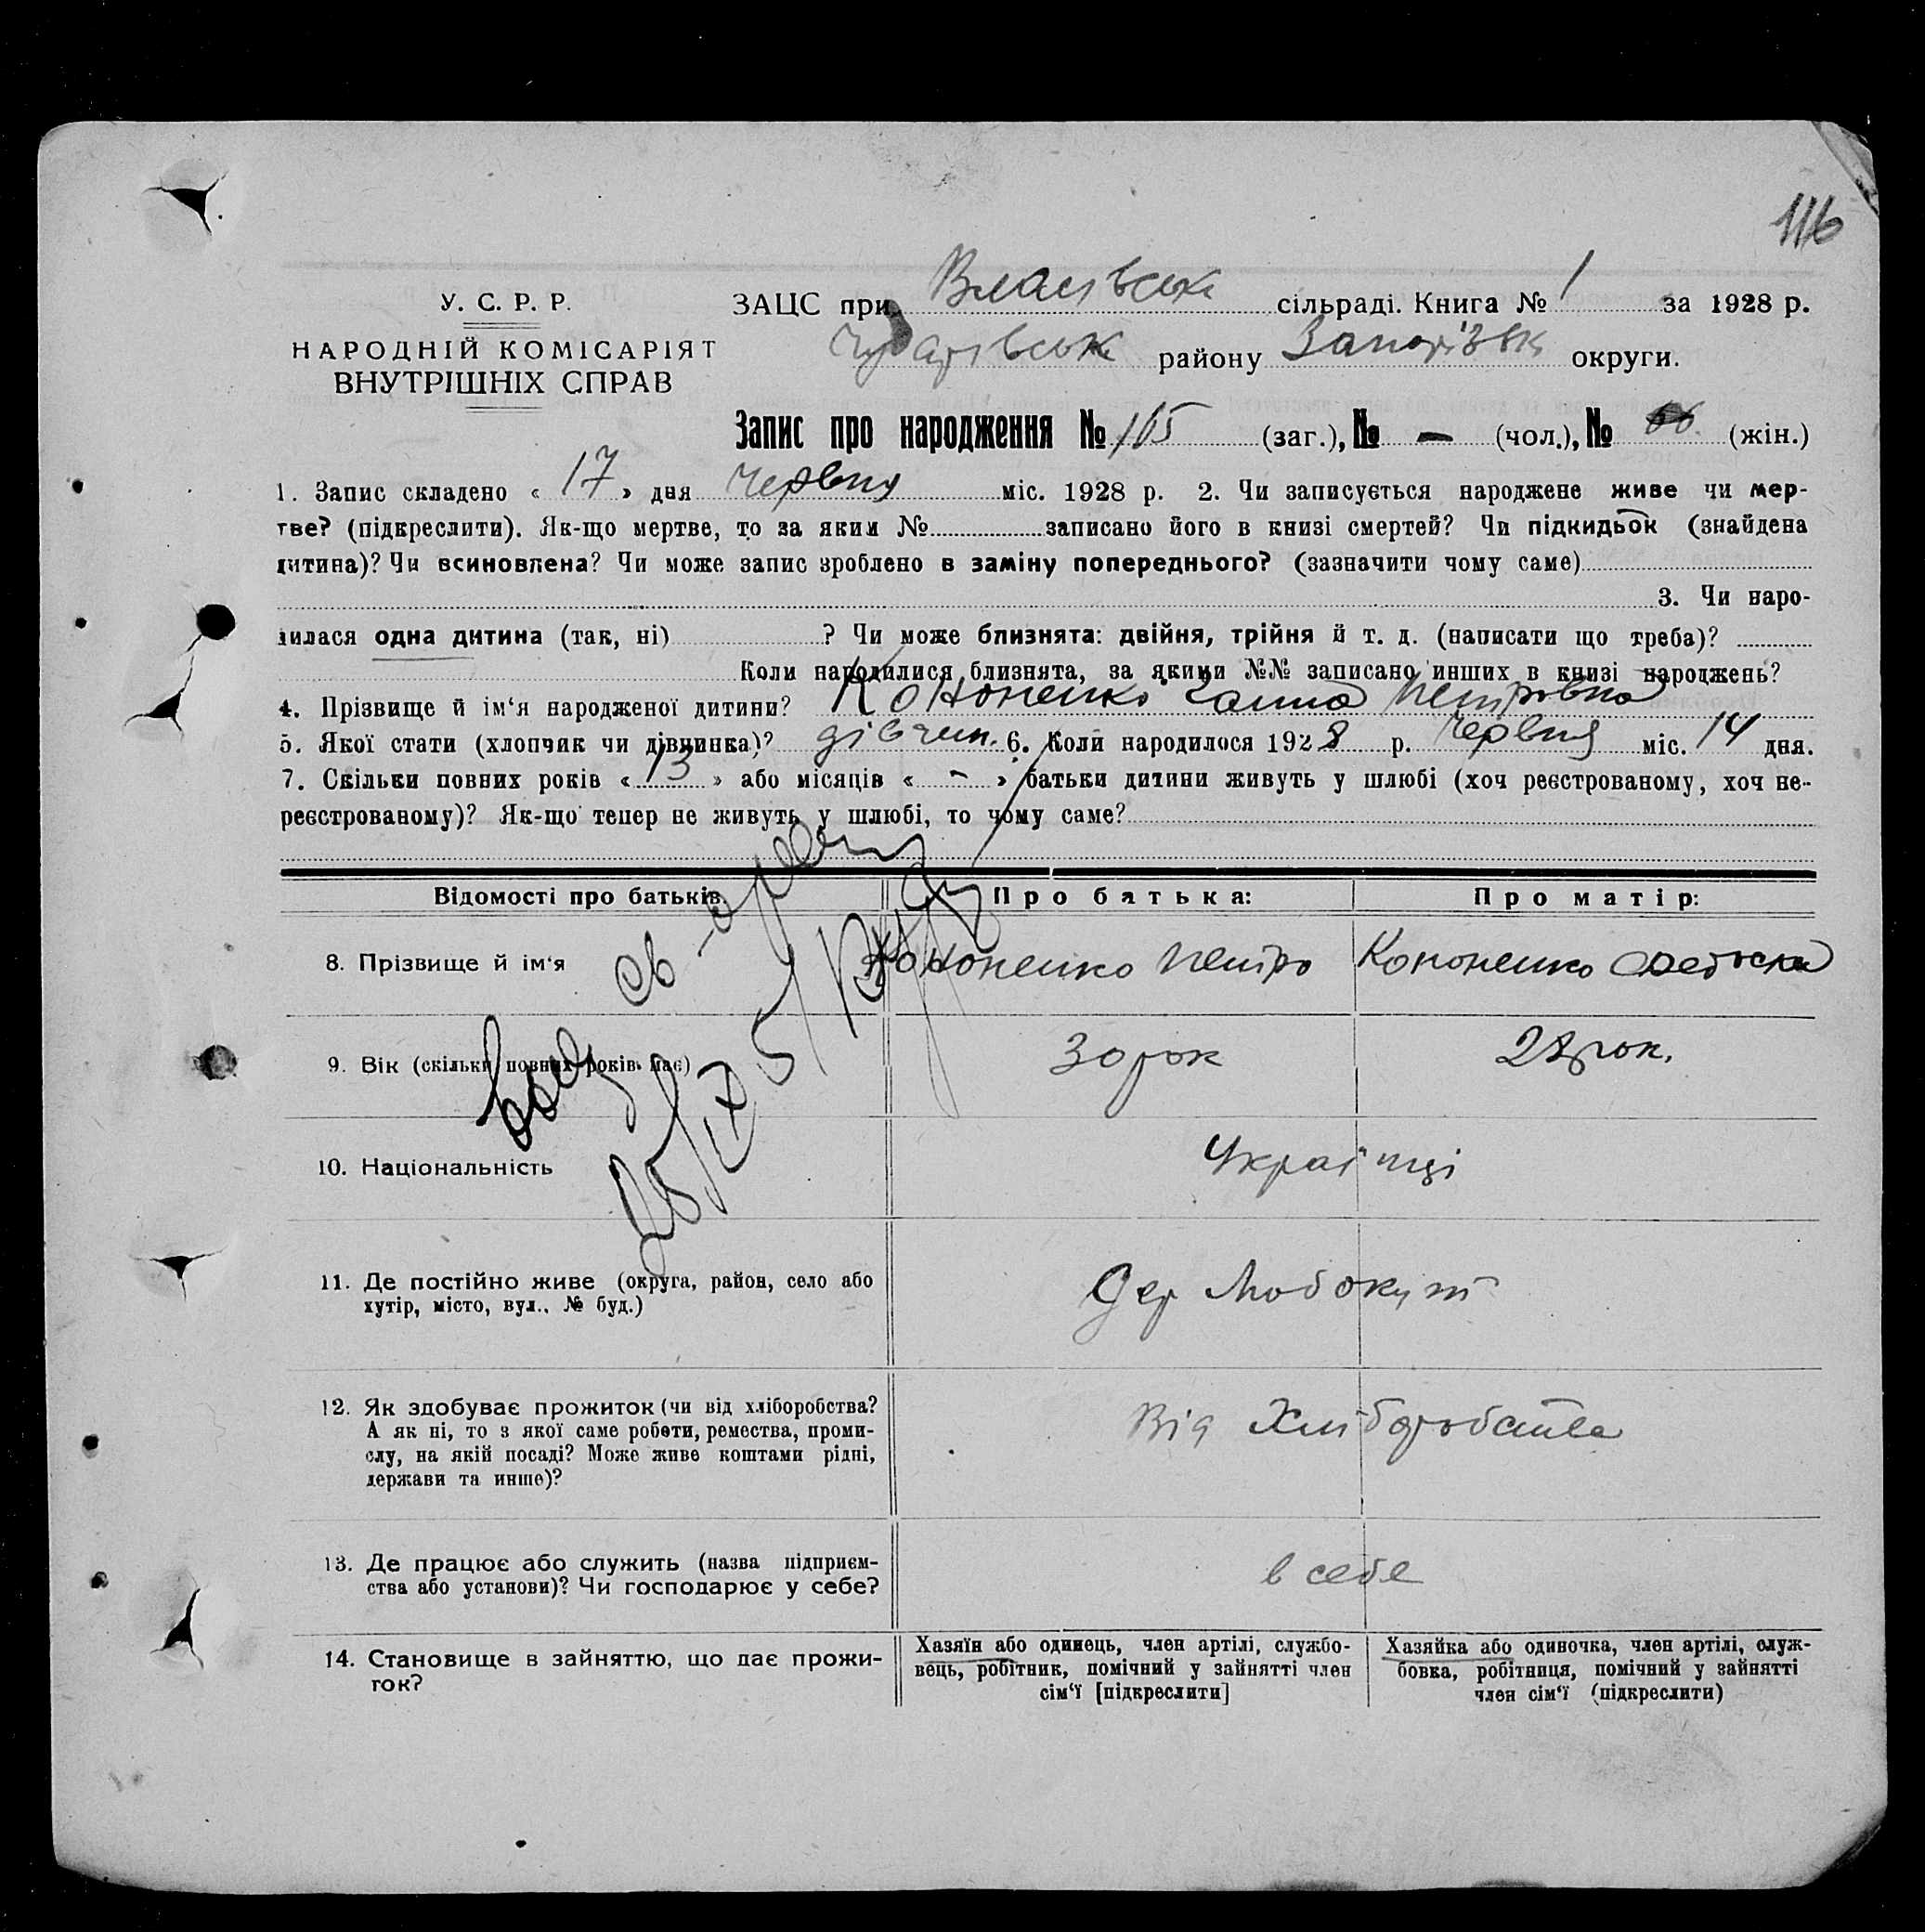 116
У. С. Р. Р.
НАРОДНІЙ КОМІСАРІЯТ
ВНУТРІШНІХ СПРАВ
ЗАЦС при Власівськ сільраді. Книга № 1 за 1928 р.
району Запорізьк округи.
Запис про народження № 165 (заг.), № — (чол.), № 66 (жін.)
1. Запис складено « 17 » дня червня міс. 1928 р. 2. Чи записується народжене живе чи мер-
тве? (підкреслити). Як-що мертве, то за яким № записано його в книзі смертей? Чи підкидьок (знайдена
дитина)? Чи всиновлена? Чи може запис зроблено в заміну попереднього? (зазначити чому саме)
3. Чи наро-
дилася одна дитина (так, ні) ? Чи може близнята: двійня, трійня й т. д. (написати що треба)?
Коли народилися близнята, за якими №№ записано инших в книзі народжень?
4. Прізвище й ім‘я народженої дитини? Кононенко Ганна Петровна
5. Якої стати (хлопчик чи дівчинка)? дівчин. 6. Коли народилося 1928 р. червня міс. 14 дня.
7. Скільки повних років « 13 » або місяців « - » батьки дитини живуть у шлюбі (хоч реєстрованому, хоч не-
реєстрованому)? Як-що тепер не живуть у шлюбі, то чому саме?
Відомості про батьків. Про батька: Про матір:
8. Прізвище й ім‘я Кононенко Петро Кононенко
9. Вік (скільки повних років має) 30 рок рок.
10. Національність Українці
11. Де постійно живе (округа, район, село або
хутір, місто, вул., № буд.)
дер Любокут
12. Як здобуває прожиток (чи від хліборобства?
А як ні, то з якої саме роботи, ремества, проми-
слу, на якій посаді? Може живе коштами рідні,
держави та инше)?
Від Хліборобства
13. Де працює або служить (назва підприєм-
ства або установи)? Чи господарює у себе?
в себе
14. Становище в зайняттю, що дає прожи-
ток?
Хазяїн або одинець, член артілі, службо-
вець, робітник, помічний у зайнятті член
сім‘ї [підкреслити]
Хазяйка або одиночка, член артілі, служ-
бовка, робітниця, помічний у зайнятті
член сім‘ї (підкреслити)